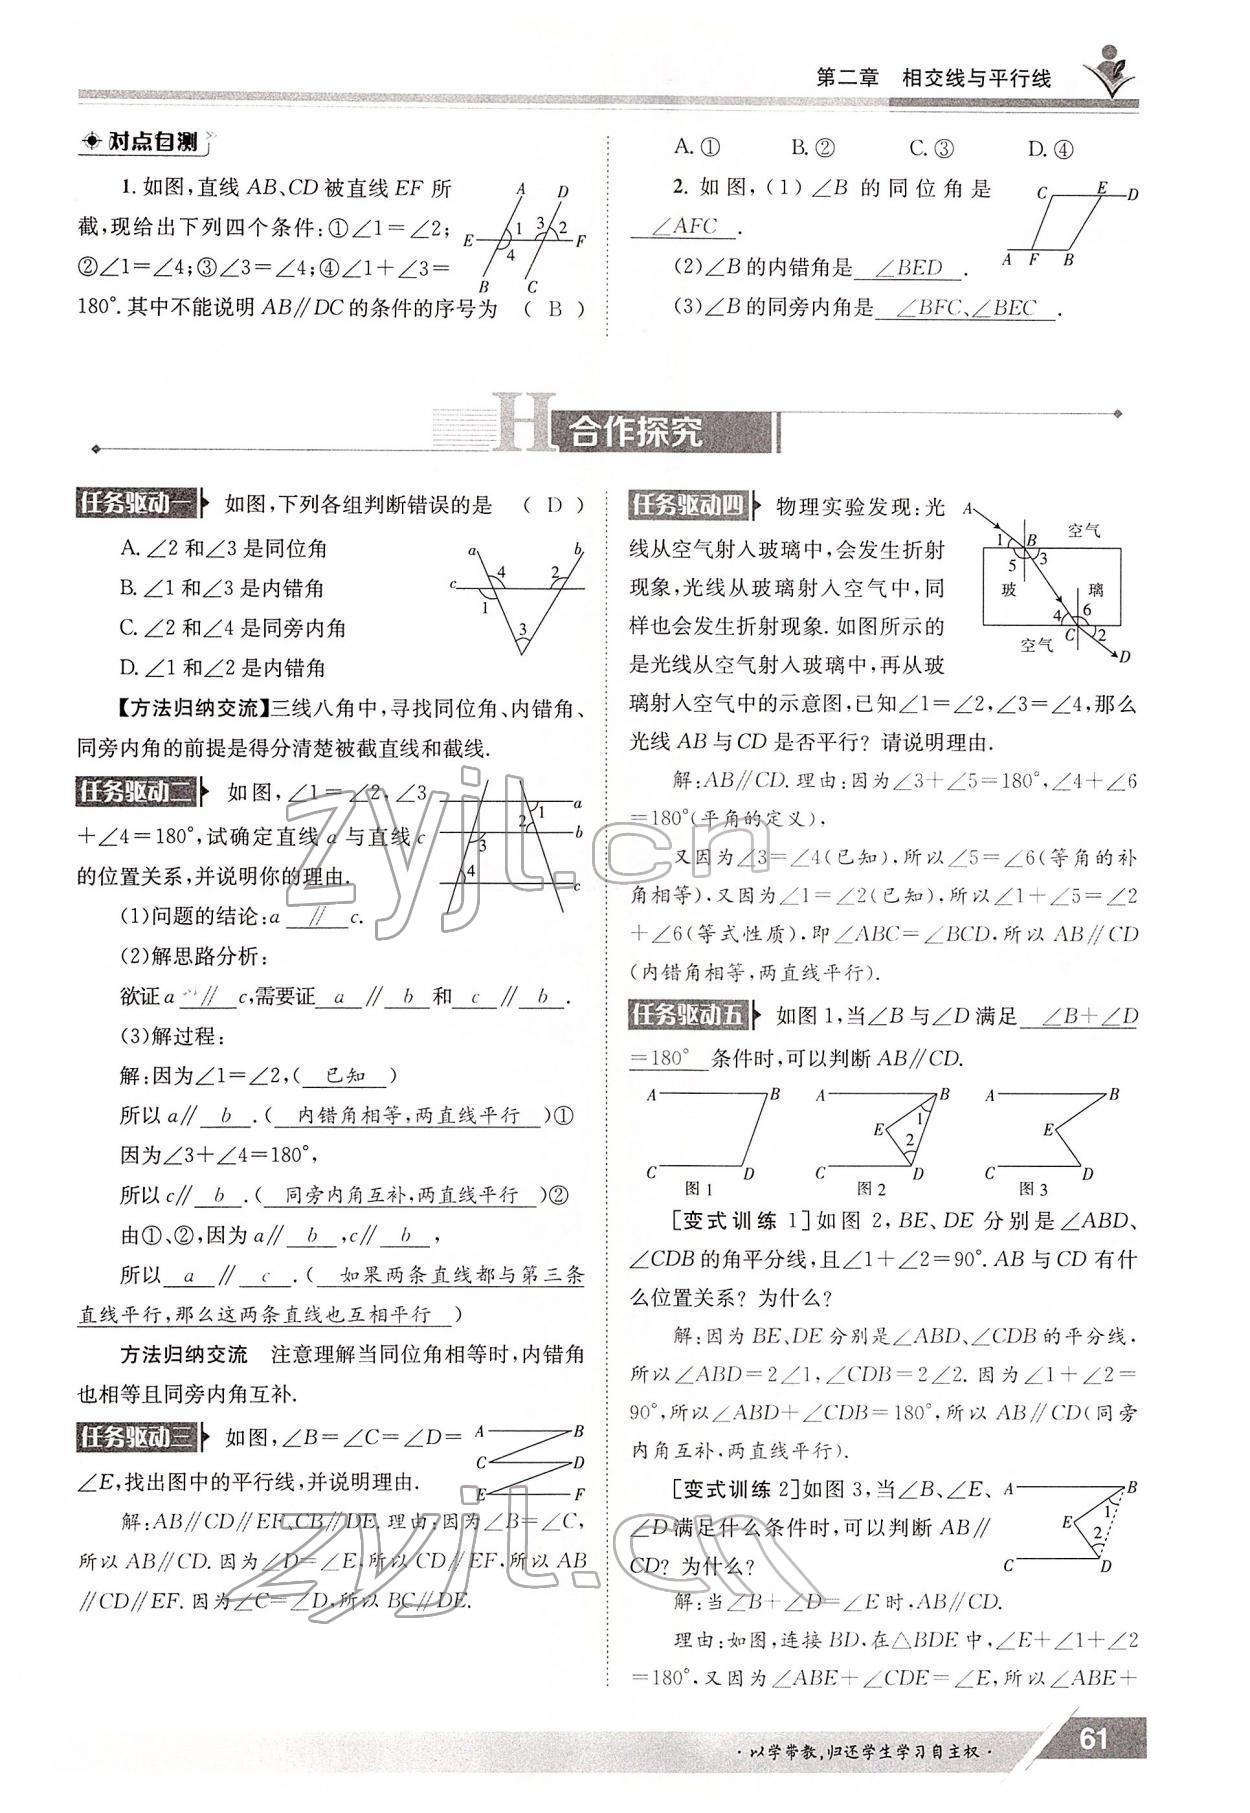 第二章 相交线与平行线
对点自测
1. 如图,直线 AB、CD 被直线 EF 所
截,现给出下列四个条件:①∠1=∠2;
②∠1=∠4;③∠3=∠4;④∠1+∠3=
180°.其中不能说明 AB∥DC 的条件的序号为 ( B )
A D E 1 3 2 F 4 B C
A. ① B. ② C. ③ D. ④
2. 如图,(1)∠B 的同位角是
∠AFC .
(2)∠B的内错角是 ∠BED .
(3)∠B的同旁内角是 ∠BFC、∠BEC .
C E D A F B
H 合作探究
任务驱动一 如图,下列各组判断错误的是 ( D )
A. ∠2 和∠3 是同位角
B. ∠1 和∠3 是内错角
C. ∠2 和∠4 是同旁内角
D. ∠1 和∠2 是内错角
a b c 4 2 1 3
【方法归纳交流】三线八角中,寻找同位角、内错角、
同旁内角的前提是得分清楚被截直线和截线.
任务驱动二 如图,∠1=∠2,∠3
+∠4=180°,试确定直线 a 与直线 c
的位置关系,并说明你的理由.
1 a 2 b 3 4 c
(1)问题的结论:a ∥ c.
(2)解思路分析:
欲证 a ∥ c,需要证 a ∥ b 和 c ∥ b .
(3)解过程:
解:因为∠1=∠2,( 已知 )
所以 a∥ b .( 内错角相等,两直线平行 )①
因为∠3+∠4=180°,
所以 c∥ b .( 同旁内角互补,两直线平行 )②
由①、②,因为 a∥ b ,c∥ b ,
所以 a ∥ c .( 如果两条直线都与第三条
直线平行,那么这两条直线也互相平行 )
方法归纳交流 注意理解当同位角相等时,内错角
也相等且同旁内角互补.
任务驱动三 如图,∠B=∠C=∠D=
∠E,找出图中的平行线,并说明理由.
A B C D E F
解:AB∥CD∥EF、CB∥DE.理由:因为∠B=∠C,
所以 AB∥CD.因为∠D=∠E,所以 CD∥EF,所以 AB
∥CD∥EF.因为∠C=∠D,所以 BC∥DE.
任务驱动四 物理实验发现:光
线从空气射入玻璃中,会发生折射
现象,光线从玻璃射入空气中,同
样也会发生折射现象.如图所示的
是光线从空气射入玻璃中,再从玻
璃射入空气中的示意图,已知∠1=∠2,∠3=∠4,那么
光线 AB 与 CD 是否平行? 请说明理由.
A 1 B 空气 5 3 玻 璃 4 6 C 2 空气 D
解:AB∥CD.理由:因为∠3+∠5=180°,∠4+∠6
=180°(平角的定义),
又因为∠3=∠4(已知),所以∠5=∠6(等角的补
角相等),又因为∠1=∠2(已知),所以∠1+∠5=∠2
+∠6(等式性质),即∠ABC=∠BCD,所以 AB∥CD
(内错角相等,两直线平行).
任务驱动五 如图 1,当∠B 与∠D 满足 ∠B+∠D
=180° 条件时,可以判断 AB∥CD.
A B C D 图 1
A B E 1 2 C D 图 2
A B E C D 图 3
[变式训练 1]如图 2,BE、DE 分别是∠ABD、
∠CDB 的角平分线,且∠1+∠2=90°. AB 与 CD 有什
么位置关系? 为什么?
解:因为 BE、DE 分别是∠ABD、∠CDB 的平分线,
所以∠ABD=2∠1,∠CDB=2∠2.因为∠1+∠2=
90°,所以∠ABD+∠CDB=180°,所以 AB∥CD(同旁
内角互补,两直线平行).
[变式训练 2]如图 3,当∠B、∠E、
∠D 满足什么条件时,可以判断 AB∥
CD? 为什么?
A B 1 E 2 C D
解:当∠B+∠D=∠E 时,AB∥CD.
理由:如图,连接 BD,在△BDE 中,∠E+∠1+∠2
=180°,又因为∠ABE+∠CDE=∠E,所以∠ABE+
·以学带教,归还学生学习自主权·
61
zyjl.cn
zyjl.cn